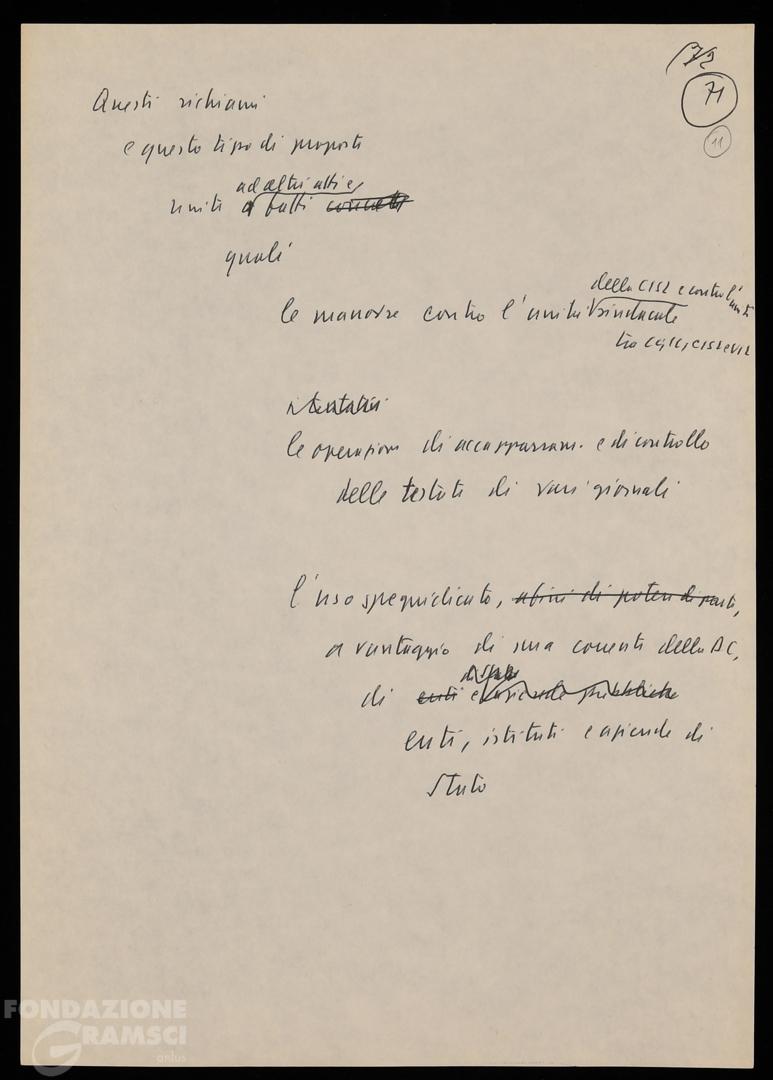 71
11
Questi richiami
e questo tipo di proposte
ad altri atti e
uniti a fatti concreti
quali
della CISL e contro l'unità
le manovre contro l'unità sindacale
tra CGIL, CISL e UIL
i tentativi
le operazioni di accaparram. e di controllo
delle testate di vari giornali
l'uso spregiudicato, a fini di potere di parte,
a vantaggio di una corrente della DC,
di Stato
di enti e aziende pubbliche
enti, istituti e aziende di
Stato
FONDAZIONE
GRAMSCI
onlus